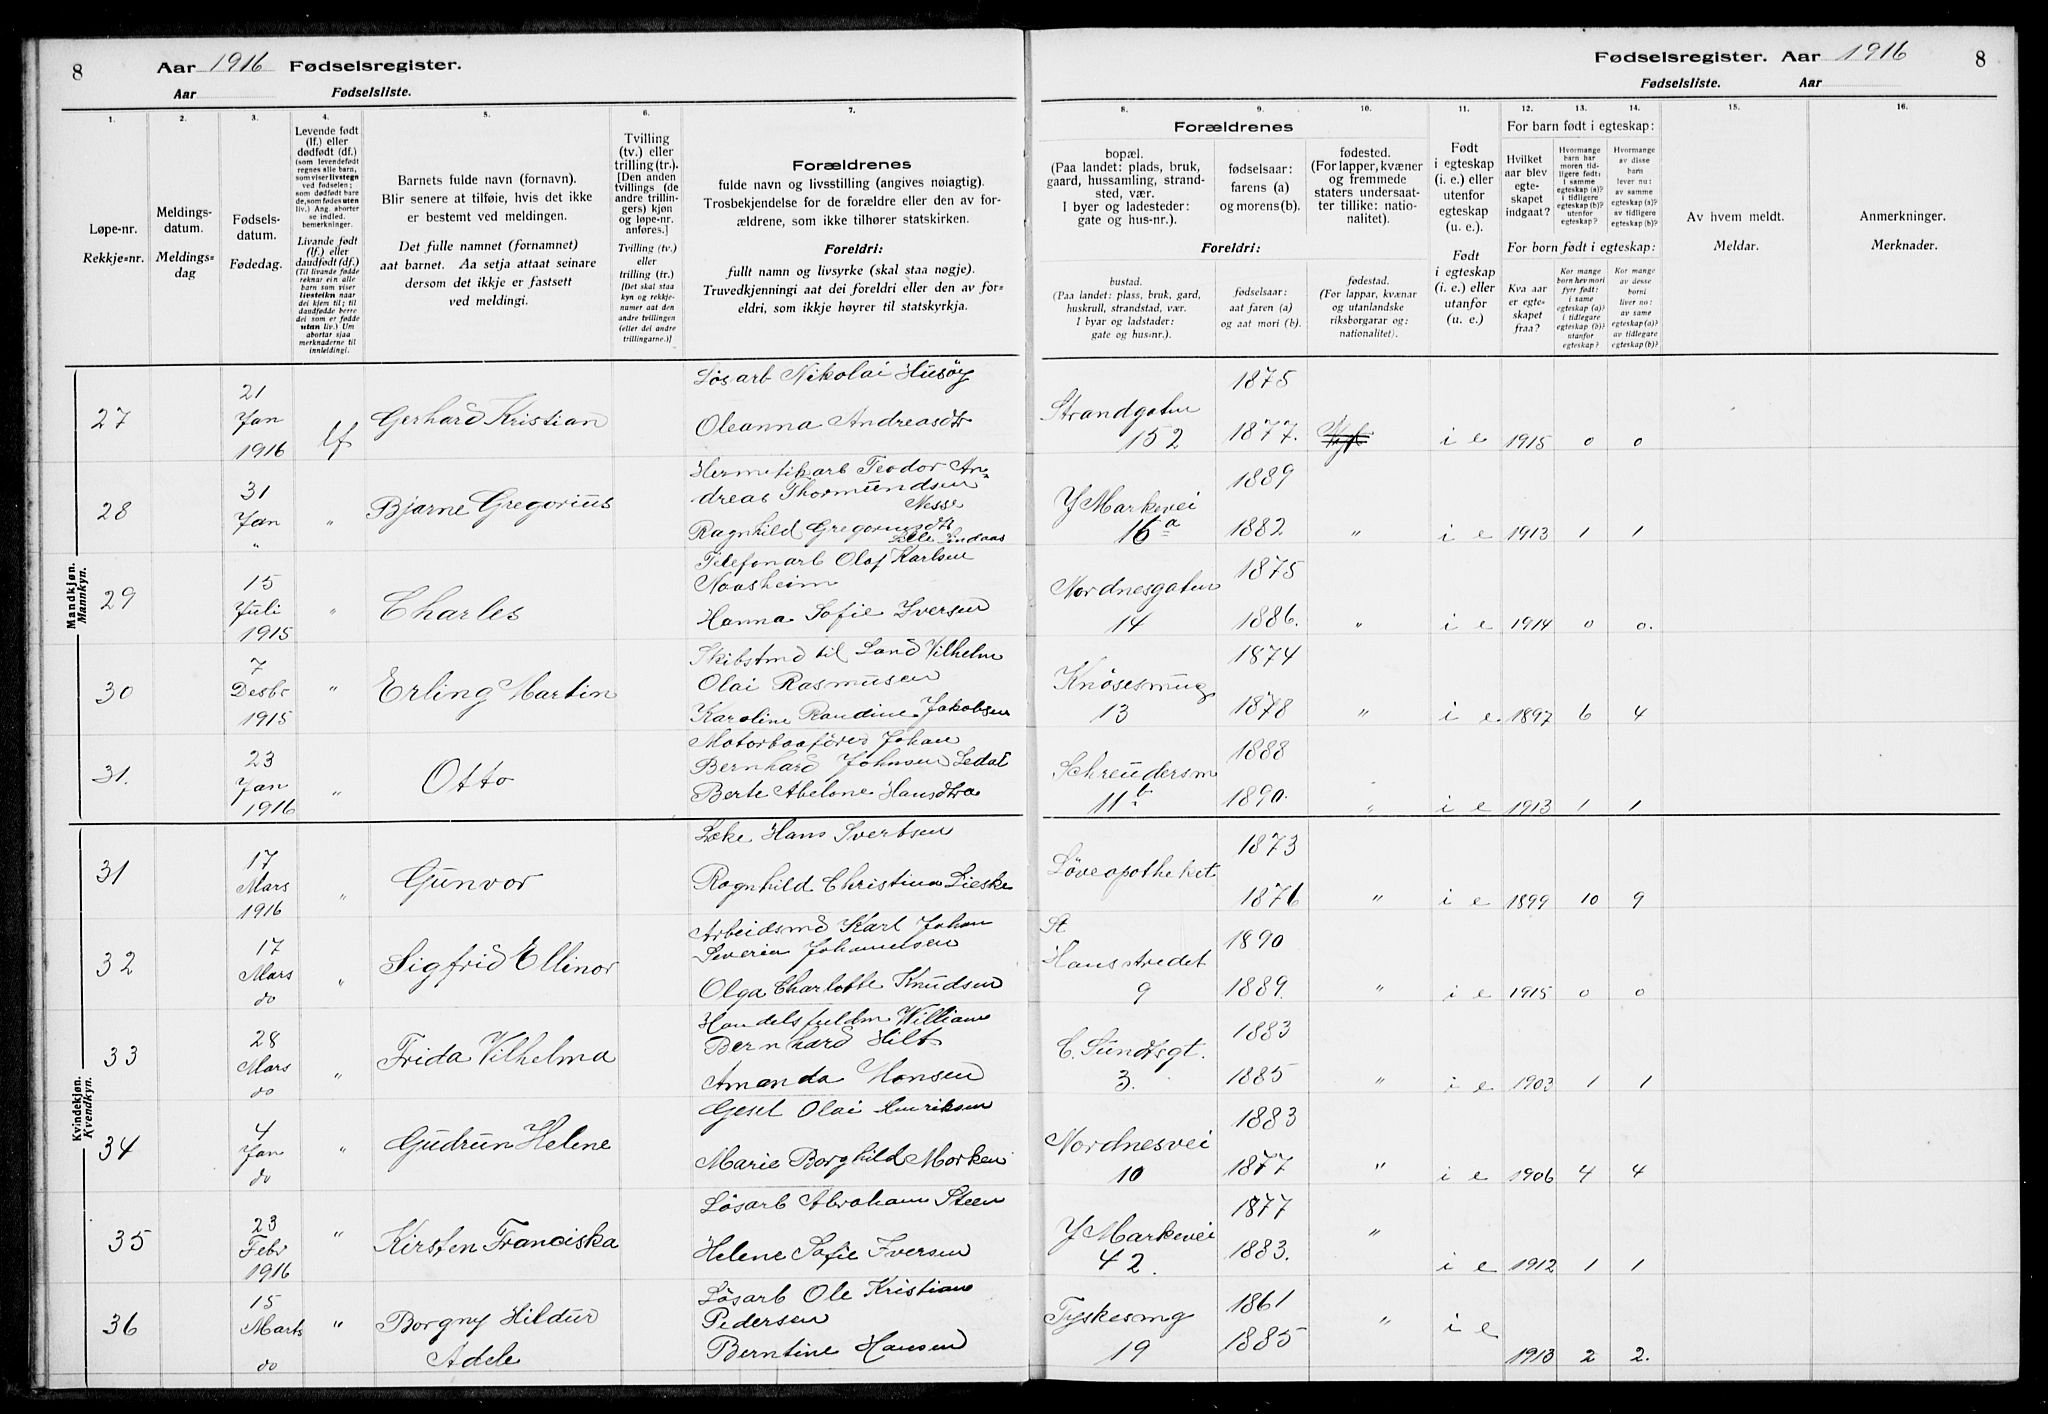 8 Aar 1916 Fødselsregister.
Aar Fødselsliste.
Fødselsregister. Aar 1916 8
Fødselsliste. Aar
1. 2. 3. 4. 5. 6. 7.
8. 9. 10. 11. 12. 13. 14. 15. 16.
Løpe-nr.
Rekkje=nr.
Meldings-
datum.
Meldings=
dag
Fødsels-
datum.
Fødedag.
Levende født
(lf.) eller
dødfødt (df.)
(som levendefødt
regnes alle barn,
som viser livstegn
ved fødselen;
som dødfødt bare
de, som fødes uten
liv.) Ang. aborter
se indled.
bemerkninger.
Livande født
(lf.) eller
daudfødt (df.)
(Til livande fødde
reknar ein alle
barn som viser
livsteikn naar
dei kjem til; til
daudfødde berre
dei som er fødde
utan liv.) Um
abortar sjaa
merknaderne til
innleidingi.
Barnets fulde navn (fornavn).
Blir senere at tilføie, hvis det ikke
er bestemt ved meldingen.
Det fulle namnet (fornamnet)
aat barnet. Aa setja attaat seinare
dersom det ikkje er fastsett
ved meldingi.
Tvilling
(tv.) eller
trilling (tr.).
[Den anden
tvillings (de
andre trillin-
gers) kjøn
og løpe-nr.
anføres.]
Tvilling (tv.)
eller
trilling (tr.)
[Det skal staa
kyn og rekkje-
numer aat den
andre tvillingen
(eller dei andre
trillingarne.)]
Forældrenes
fulde navn og livsstilling (angives nøiagtig).
Trosbekjendelse for de forældre eller den av for-
ældrene, som ikke tilhører statskirken.
Foreldri:
fullt namn og livsyrke (skal staa nøgje).
Truvedkjenningi aat dei foreldri eller den av for=
eldri, som ikkje høyrer til statskyrkja.
Forældrenes
bopæl.
(Paa landet: plads, bruk,
gaard, hussamling, strand-
sted, vær.
I byer og ladesteder:
gate og hus-nr.).
fødselsaar:
farens (a)
og morens (b).
fødested.
(For lapper, kvæner
og fremmede
staters undersaat-
ter tillike: natio-
nalitet).
Foreldri:
bustad.
(Paa landet: plass, bruk, gard,
huskrull, strandstad, vær.
I byar og ladstader:
gate og hus-nr.).
fødselsaar:
aat faren (a)
og aat mori (b).
fødestad.
(For lappar, kvænar
og utanlandske
riksborgarar og:
nationalitet).
Født
i egteskap
(i. e.) eller
utenfor
egteskap
(u. e.).
Født
i egteskap
(i. e.) eller
utanfor
(u. e.)
For barn født i egteskap:
Hvilket
aar blev
egte-
skapet
indgaat?
Hvormange
barn har
moren tid-
ligere født:
i samme
egteskap (a)?
i tidligere
egteskap (b)?
utenfor
egteskap?
Hvormange
av disse
barn
lever nu:
av samme
egteskap (a)?
av tidligere
egteskap (b)?
For born født i egteskap:
Kva aar
er egte-
skapet
fraa?
Kor mange
born hev mori
fyrr født:
i same
egteskap (a)?
i tidlegare
egteskap (b)?
utanfor
egteskap?
Kor mange
av desse
borni
liver no:
av same
egteskap (a)?
av tidlegare
egteskap (b)?
Av hvem meldt.
Meldar.
Anmerkninger.
Merknader.
Mandkjøn.
Mannkyn.
27 21 Jan 1916 lf Gerhard Kristian Løsarb Nikolai Husöy
Oleanna Andreasdtr
Strandgaten 152 1875 1877. i e 1915 0 0
28 31 Jan " " Bjarne Gregorius Hermetikarb Teodor An-
dreas Thormundsen
Nesse
Ragnhild Gregoriusdt
Y Markevei 16a 1889 1882 " i e 1913 1 1
29 15 Juli 1915 " Charles Telefonarb Olaf Karlsen
Naasheim
Hanna Sofie Iversen
Nordnesgaten 14 1875 1886. " i e 1914 0 0.
30 7 Desbr 1915 " Erling Martin Skibstmd til Land Vilhelm
Olai Rasmusen
Karoline Randine Jakobsen
Knösesmug 13 1874 1878 " i e. 1897 6 4
31. 23 Jan 1916 " Otto Motorbaaförer Johan
Bernhard Johnsen Ledal
Berte Abelone Hansdtra
Schreudersm 11b 1888 1890. " i e 1913 1 1
Kvindekjøn.
Kvendkyn.
31 17 Mars 1916 " Gunvor Læke Hans Svertsen
Ragnhild Christina Lieske
Löveapotheket 1873 1876 " i e 1899 10 9
32 17 Mars do " Sigfrid Ellinor Arbeidsmd Karl Johan
Severin Johannesen
Olga Charlotte Knudsen
St Hansstredet 9 1890 1889. " i e 1915 0 0
33 28 Mars do " Frida Vilhelma Handelsfuldm William
Bernhard Hilt
Amanda Hansen
C. Sundtsgt. 3. 1883 1885 " i e 1903 1 1
34 4 Jan do " Gudrun Helene Gesel Olai Henriksen
Marie Borghild Morken
Nordnesvei 10 1883 1877 " i e 1906 4 4
35 23 Febr 1916 " Kirsten Franciska Løsarb Abraham Steen
Helene Sofie Iversen
Y Markevei 42. 1877 1883. " i e 1912 1 1
36 15 Marts do " Borgny Hildur
Adele Løsarb Ole Kristian
Pedersen
Berntine Hansen
Tyskesmg 19 1861 1885 " i e 1913 2 2.